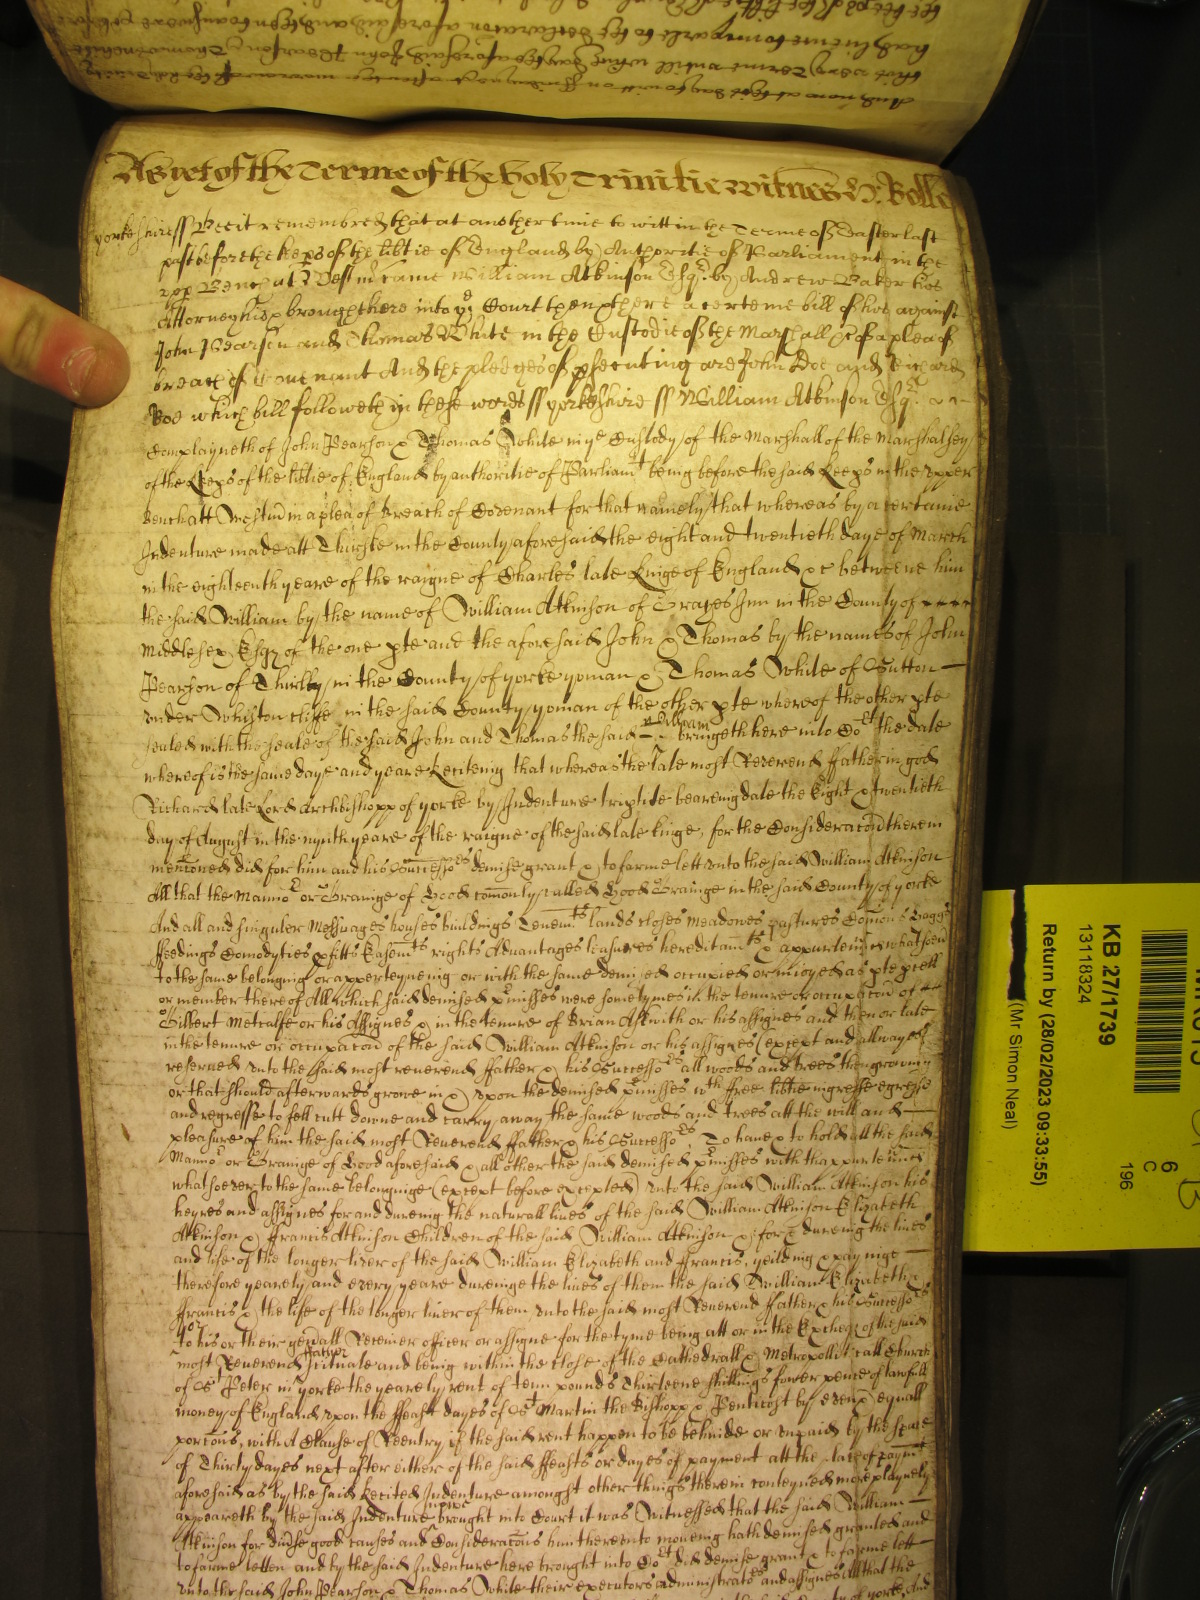 As yet of the Terme of the holy Trinitie witnes H: Rolle
yorkeshire ss Bee it remembred that at another time to witt in the Terme of Easter last
past before the kep~s of the lib~tie of England by Authoritie of Parliament in the
upp~ Bench att Westm~ came William Atkinson Esqr. by Andrew Baker his
Attorney & brought here into ye Court then & there a certeine bill of his against
John Pearson and Thomas White in the Custodie of the Marshall &c of a plea of
breach of Covenant And the pledges of p~secuting are John Doe and Richard
Roe which bill followeth in these words ss yorkeshire ss William Atkinson Esqr.
Complayneth of John Pearson & Thomas White in ye Custody of the Marshall of the Marshalsey
of the Keep~s of the lib~tie of England by authoritie of Parliamt being before the said Keep~s in the upper
Bench att Westm~ in a plea of breach of Covenant for that namely that whereas by a certaine
Indenture made att Thirske in the County aforesaid the eight and twentieth daye of March
in the eighteenth yeare of the raigne of Charles late Kinge of England &c betweene him
the said William by the name of William Atkinson of Grayes Inn in the County of
Middlesex Esqr of the one p~te and the aforesaid John & Thomas by the names of John
Pearson of Thirlby in the County of yorke yoman & Thomas White of Sutton
under Whiston cliffe in the said County yoman of the other p~te whereof the other p~te
sealed with the seale of the said John and Thomas the said William bringeth here into Cort the date
whereof is the same daye and yeare Reciteing that whereas the late most Reverend ffather in god
Richard late Lord Archbishopp of yorke by Indenture trip~tite beareing date the Eight & twentieth
day of August in the nynth yeare of the raigne of the said late kinge, for the Considerac~on therein
menc~oned did for him and his Successors demise grant & to farme lett unto the said William Atkinson
All that the Mannor or Grainge of Hood com~only called Hood Grainge in the said County of yorke
And all and singuler Messuages houses buildings Tenemts lands closes meadowes pastures Com~ons
ffeedings Comodyties p~fitts Easemts rights Advantages leasures hereditamts & appurten~ces whatsoev~
to the same belonging or apperteyneing or with the same demised occupied or inioyed as p~te p~cell
or member thereof All which said demised p~misses were sometymes in the tenure or occupac~on of
Gilbert Metcalfe or his Assignes & in the tenure of Brian Askwith or his assignes and then or late
in the tenure or occupac~on of the said William Atkinson or his assignes (except and allwayes
reserved unto the said most reverend ffather & his Successors all woods and trees then groweing
or that should afterwards growe in & upon the demised p~misses wth free lib~tie ingresse egresse
and regresse to fell cutt downe and carry away the same woods and trees att the will and
pleasure of him the said most Reverend ffather & his Successors, To have & to hold all the said
Mannor or Grainge of Hood aforesaid & all other the said demised p~misses with th appurten~ces
whatsoever to the same belonginge (except before excepted) unto the said William Atkinson his
heyres and assignes for and dureing the naturall lives of the said William Atkinson Elizabeth
Atkinson & Francis Atkinson Children of the said William Atkinson & for & dureing the lives
and life of the longer liver of the said William Elizabeth and Francis, yeilding & payinge
therefore yearely and every yeare dureinge the lives of them the said William Elizabeth &
Francis & the life of the longer liver of them unto the said most Reverend ffather & his Successors
or to his or their gen~all Receiver officer or assigne for the tyme being att or in the Excheqr of the said
most Reverend ffather scituate and being within the close of the Cathedrall & Metropollit~call Church
of St Peter in yorke the yearely rent of tenn pounds Thirteene shillings fower pence of lawfull
money of England upon the ffeast dayes of St Martin the Bishopp & Penticost by even & equall
porc~ons, with A Clause of Reentry if the said rent happen to be behinde or unpaid by the space
of Thirty dayes next after either of the said ffeasts or dayes of payment att the place of paymt
aforesaid as by the said Recited Indenture amongst other things therein conteyned more playnely
appeareth by the said Indenture nowe brought into Court it was Witnessed that the said William
Atkinson for div~se good causes and Considerac~ons him thereunto moveing hath demised granted and
to farme letten and by the said Indenture here brought into Cort did demise grant & to farme lett
unto the said John Pearson & Thomas White their executors administrators and assignes All that the
KB 27/1739
13118324
Return by (28/02/2023 09:33:55)
(Mr Simon Neal)
6
C
196